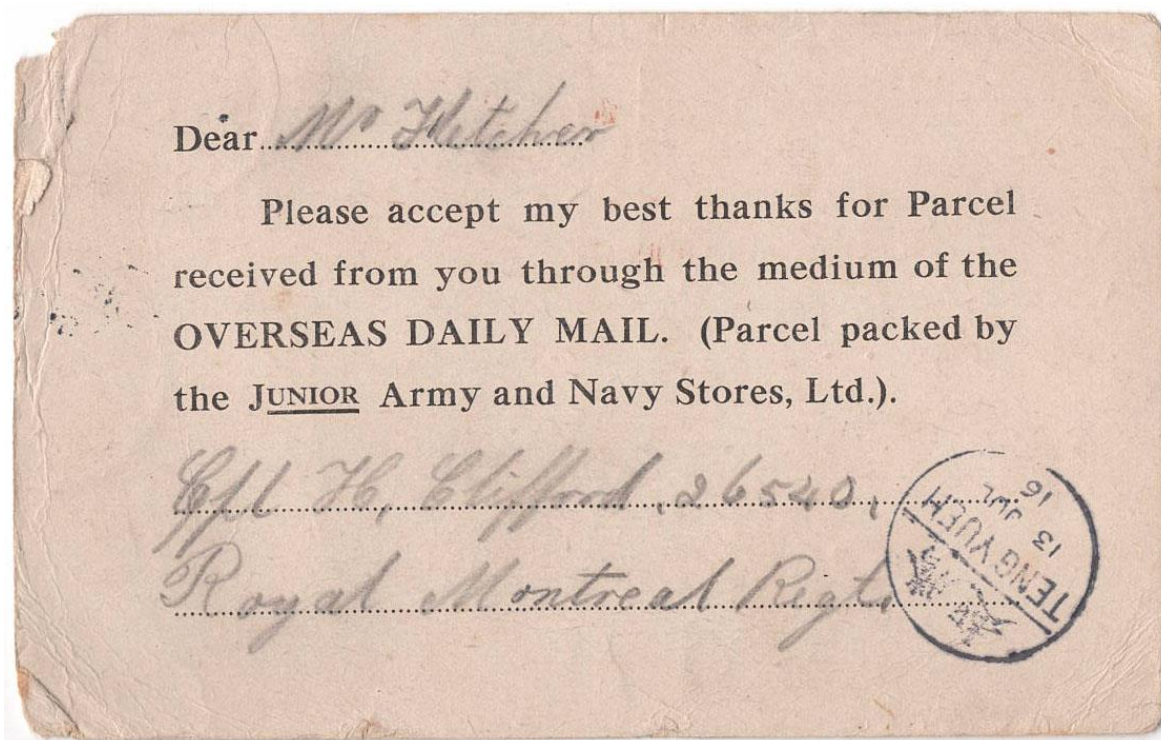 Dear Mr Fletcher
Please accept my best thanks for Parcel
received from you through the medium of the
OVERSEAS DAILY MAIL. (Parcel packed by
the JUNIOR Army and Navy Stores, Ltd.).
Cpl H, Clifford, 26540,
Royal Montreal Regt
TENGYUEH
13
JUL
16